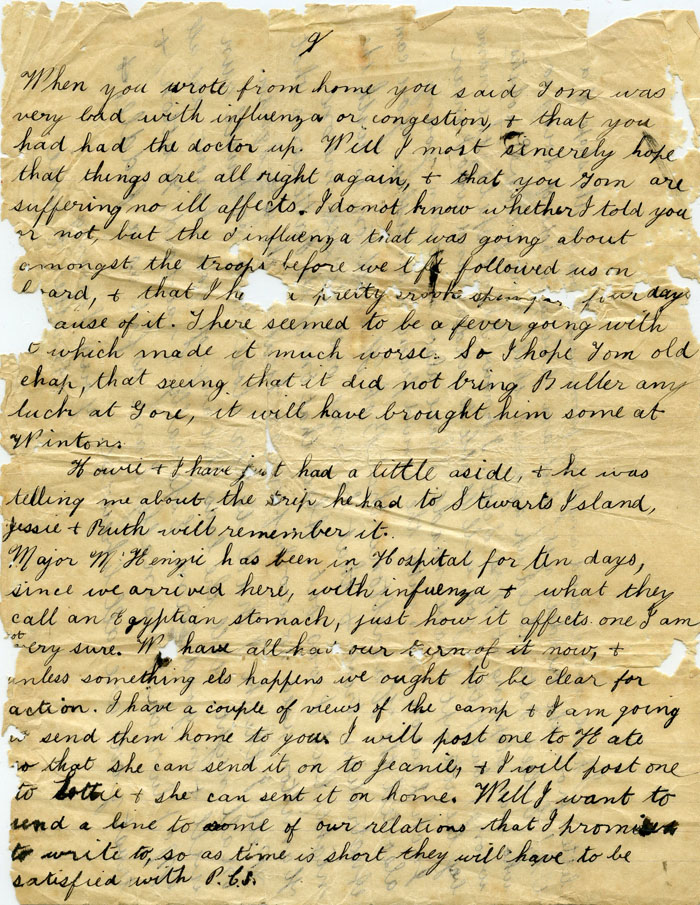 9
When you wrote from home you said Tom was
very bad with influenza or congestion, + that you
had had the doctor up. Well I most sincerely hope
that things are all right again, + that you Tom are
suffering no ill affects. I do not know whether I told you
or not, but the influenza that was going about
amongst the troops before we left followed us on
board, + that I ha a pretty four days
ause of it. There seemed to be a fever going with
which made it much worse. So I hope Tom old
chap, that seeing that it did not bring Buller any
luck at Gore, it will have brought him some at
Winton.
Howie + I have just had a little aside, + he was
telling me about the trip he had to Stewarts Island,
Jessie + Ruth will remember it.
Major McKenzie has been in Hospital for ten days,
since we arrived here, with infuenza + what they
call an Egyptian stomach, just how it affects one I am
not very sure. We have all had our turn of it now, +
unless something els happens we ought to be clear for
action. I have a couple of views of the camp + I am going
to send them home to you. I will post one to Kate
so that she can send it on to Jeanie, + I will post one
to Lottie + she can sent it on home. Well I want to
send a line to some of our relations that I promised
to write to, so as time is short they will have to be
satisfied with P.C.S.